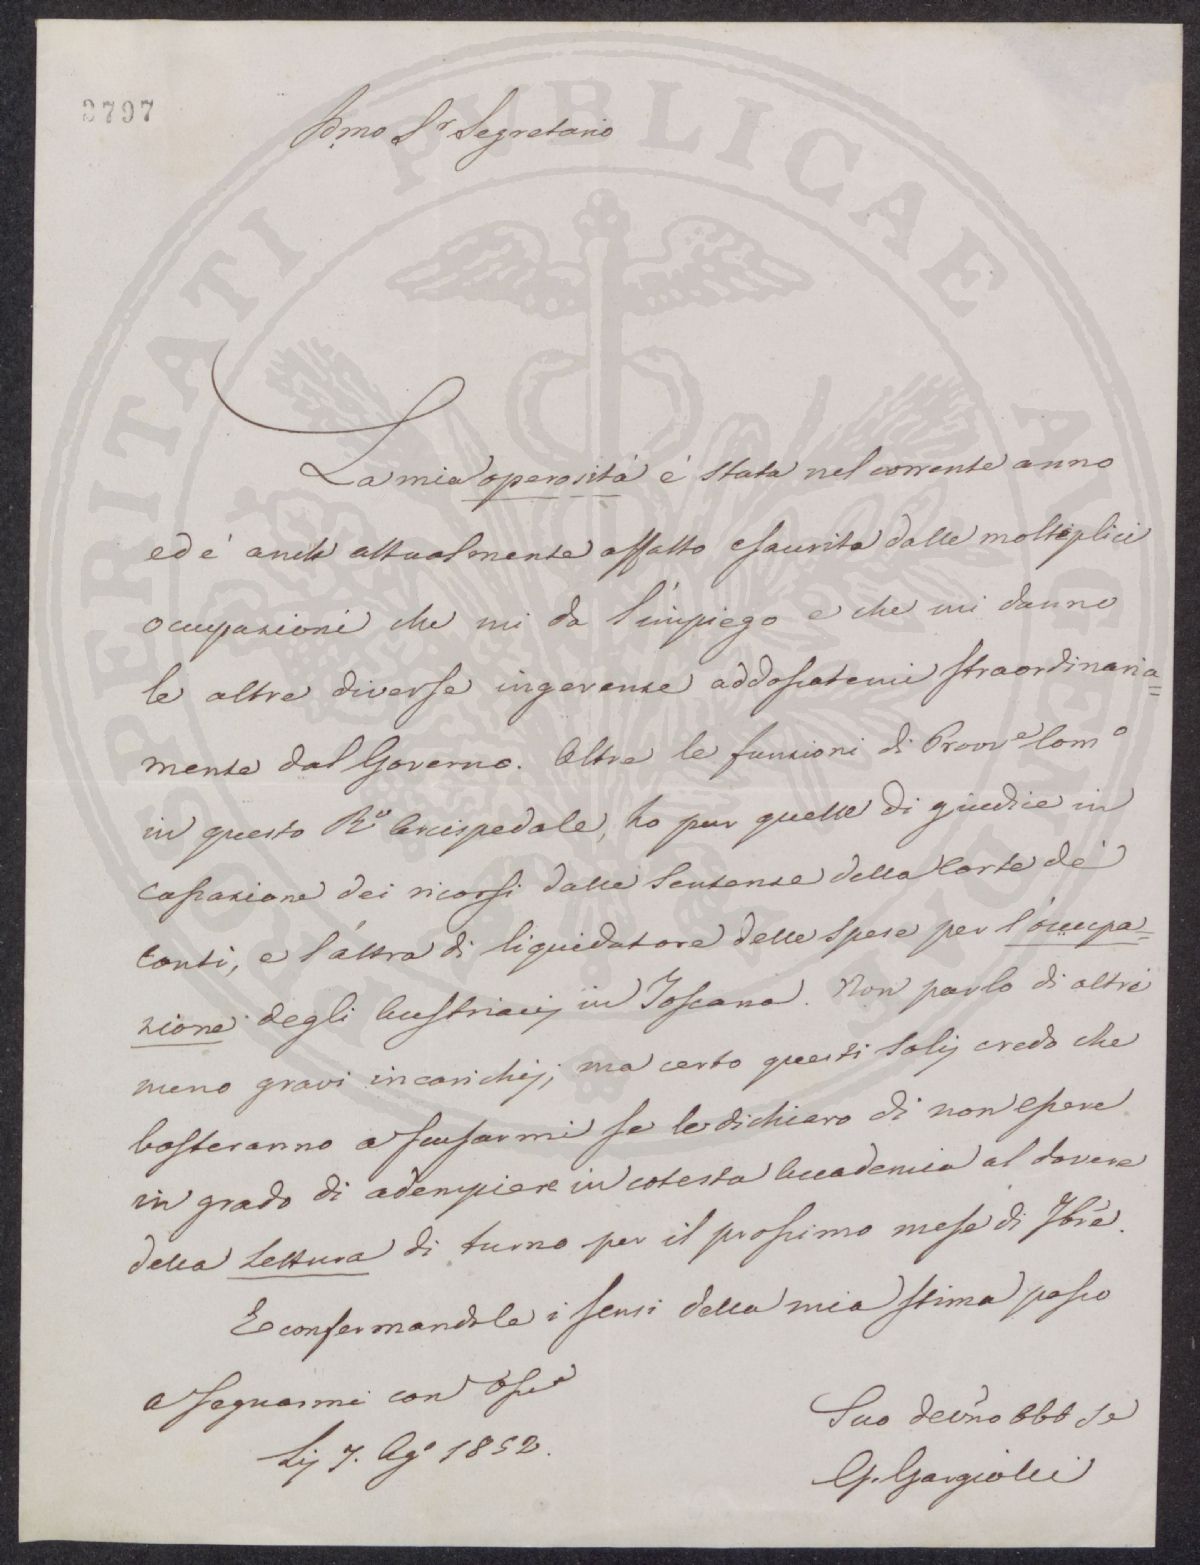 3797
PROSPERITATI PVBLICAE AVGENDAE
Pmo Sr Segretario
La mia operosità è stata nel corrente anno
ed è anche attualmente affatto esaurita dalle molteplici
occupazioni che mi da l'impiego e che mi danno
le altre diverse ingerenze addossatemi straordinaria=
mente dal Governo. Oltre le funzioni di Provve Commo
in questo Ro Arcispedale, ho pur quelle di giudice in
cassazione dei ricorsi dalle Sentenze della Corte de'
Conti, e l'altra di liquidatore delle spese per l'occupa=
zione degli Austriacij in Toscana. Non parlo di altri
meno gravi incarichij; ma certo questi solij credo che
basteranno a scusarmi se le dichiaro di non essere
in grado di adempiere in cotesta Accademia al dovere
della Lettura di turno per il prossimo mese di 7bre.
E confermandole i sensi della mia stima passo
a segnarmi con
Lij 7. Ago 1852.
Suo devmo obb se
G. Gargiolli